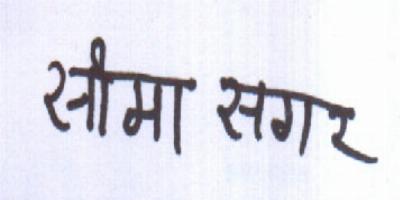 सीमा सगर